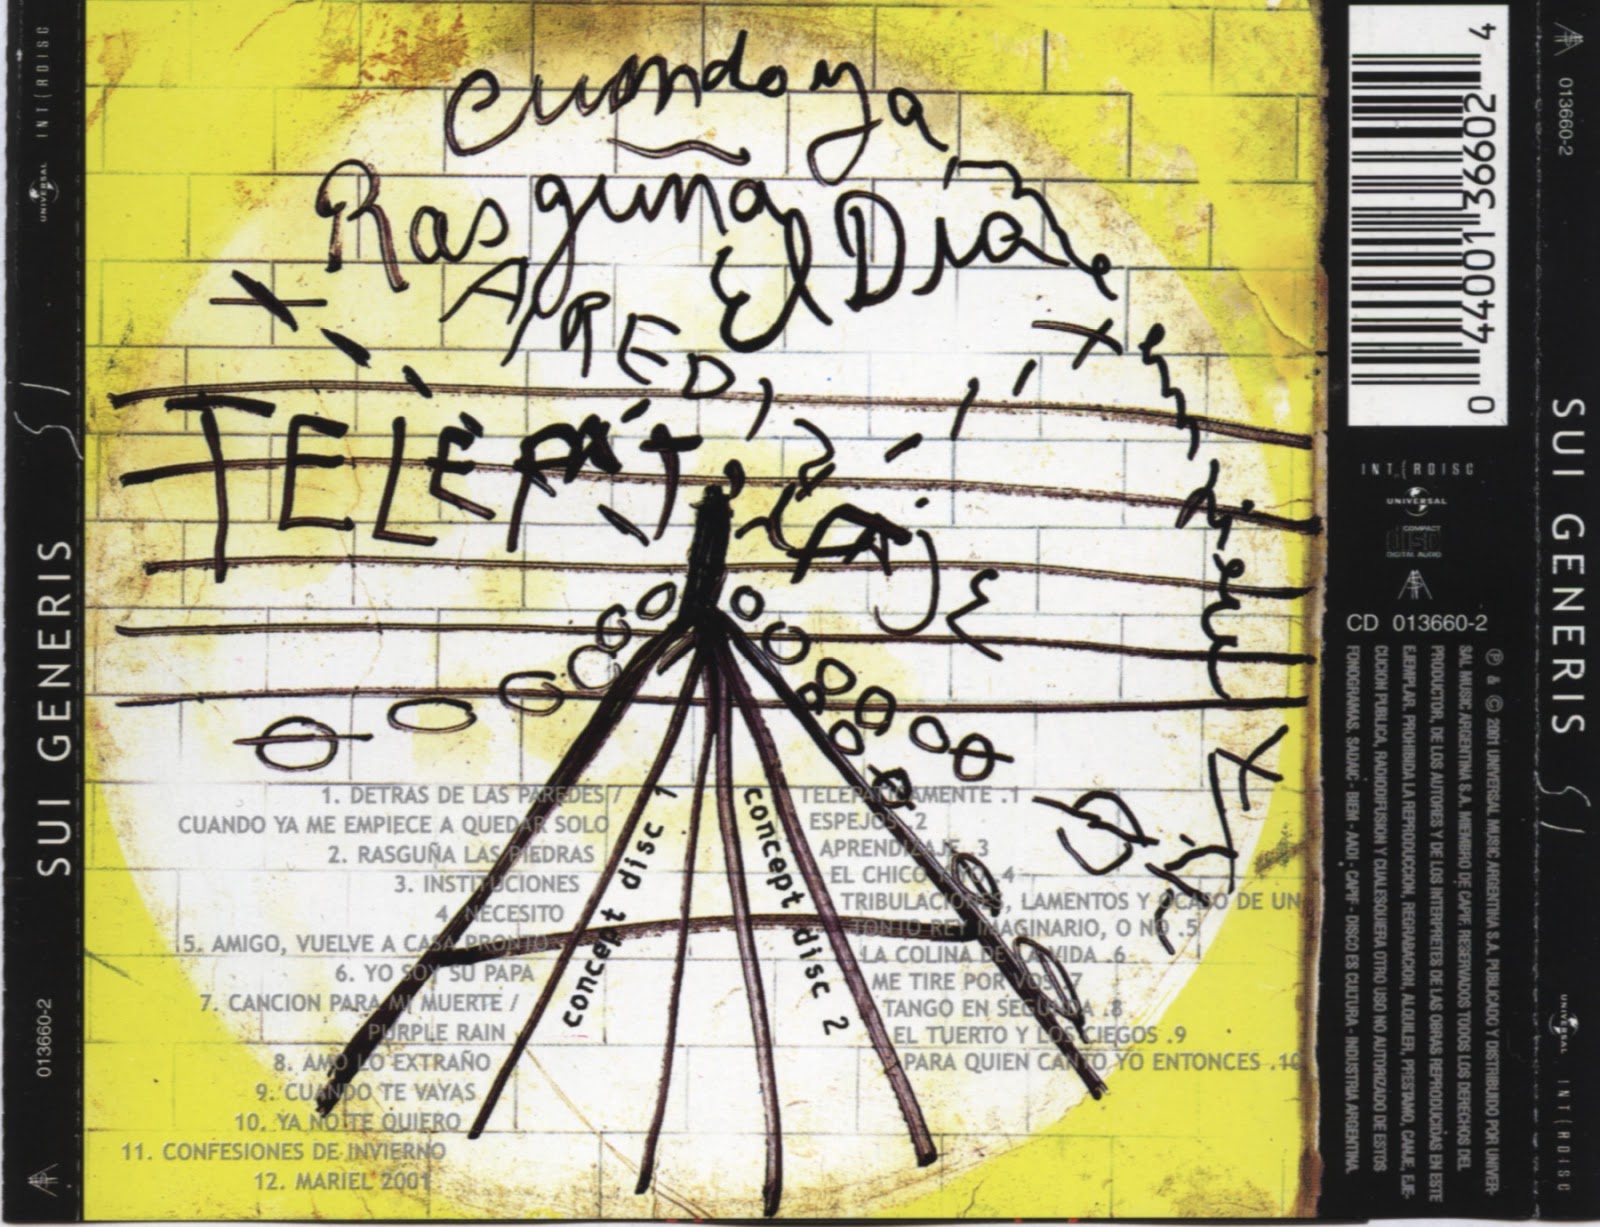 SUI GENERIS SI
013660-2
INT(RDISC
UNIVERSAL
cuando ya
me
Rasguna
El Dia
A
RED
TELEPAT
1. DETRAS DE LAS PAREDES /
CUANDO YA ME EMPIECE A QUEDAR SOLO
2. RASGUÑA LAS PIEDRAS
3. INSTITUCIONES
4. NECESITO
5. AMIGO, VUELVE A CASA PRONTO
6. YO SOY SU PAPA
7. CANCION PARA MI MUERTE /
PURPLE RAIN
8. AMO LO EXTRAÑO
9. CUANDO TE VAYAS
10. YA NO TE QUIERO
11. CONFESIONES DE INVIERNO
12. MARIEL 2001
concept disc 1
concept disc 2
TELEPATICAMENTE .1
ESPEJOS .2
APRENDIZAJE .3
EL CHICO Y YO .4
TRIBULACIONES, LAMENTOS Y OCASO DE UN
TONTO REY IMAGINARIO, O NO .5
LA COLINA DE LA VIDA .6
ME TIRE POR VOS .7
TANGO EN SEGUNDA .8
EL TUERTO Y LOS CIEGOS .9
PARA QUIEN CANTO YO ENTONCES .10
0 44001 36602 4
INT(RDISC
UNIVERSAL
COMPACT
disc
DIGITAL AUDIO
CD 013660-2
℗ & © 2001 UNIVERSAL MUSIC ARGENTINA S.A. PUBLICADO Y DISTRIBUIDO POR UNIVER-
SAL MUSIC ARGENTINA S.A. MIEMBRO DE CAPIF. RESERVADOS TODOS LOS DERECHOS DEL
PRODUCTOR, DE LOS AUTORES Y DE LOS INTERPRETES DE LAS OBRAS REPRODUCIDAS EN ESTE
EJEMPLAR. PROHIBIDA LA REPRODUCCION, REGRABACION, ALQUILER, PRESTAMO, CANJE, EJE-
CUCION PUBLICA, RADIODIFUSION Y CUALESQUIERA OTRO USO NO AUTORIZADO DE ESTOS
FONOGRAMAS. SADAIC - BIEM - AADI - CAPIF - DISCO ES CULTURA - INDUSTRIA ARGENTINA.
013660-2
SUI GENERIS SI
UNIVERSAL
INT(RDISC